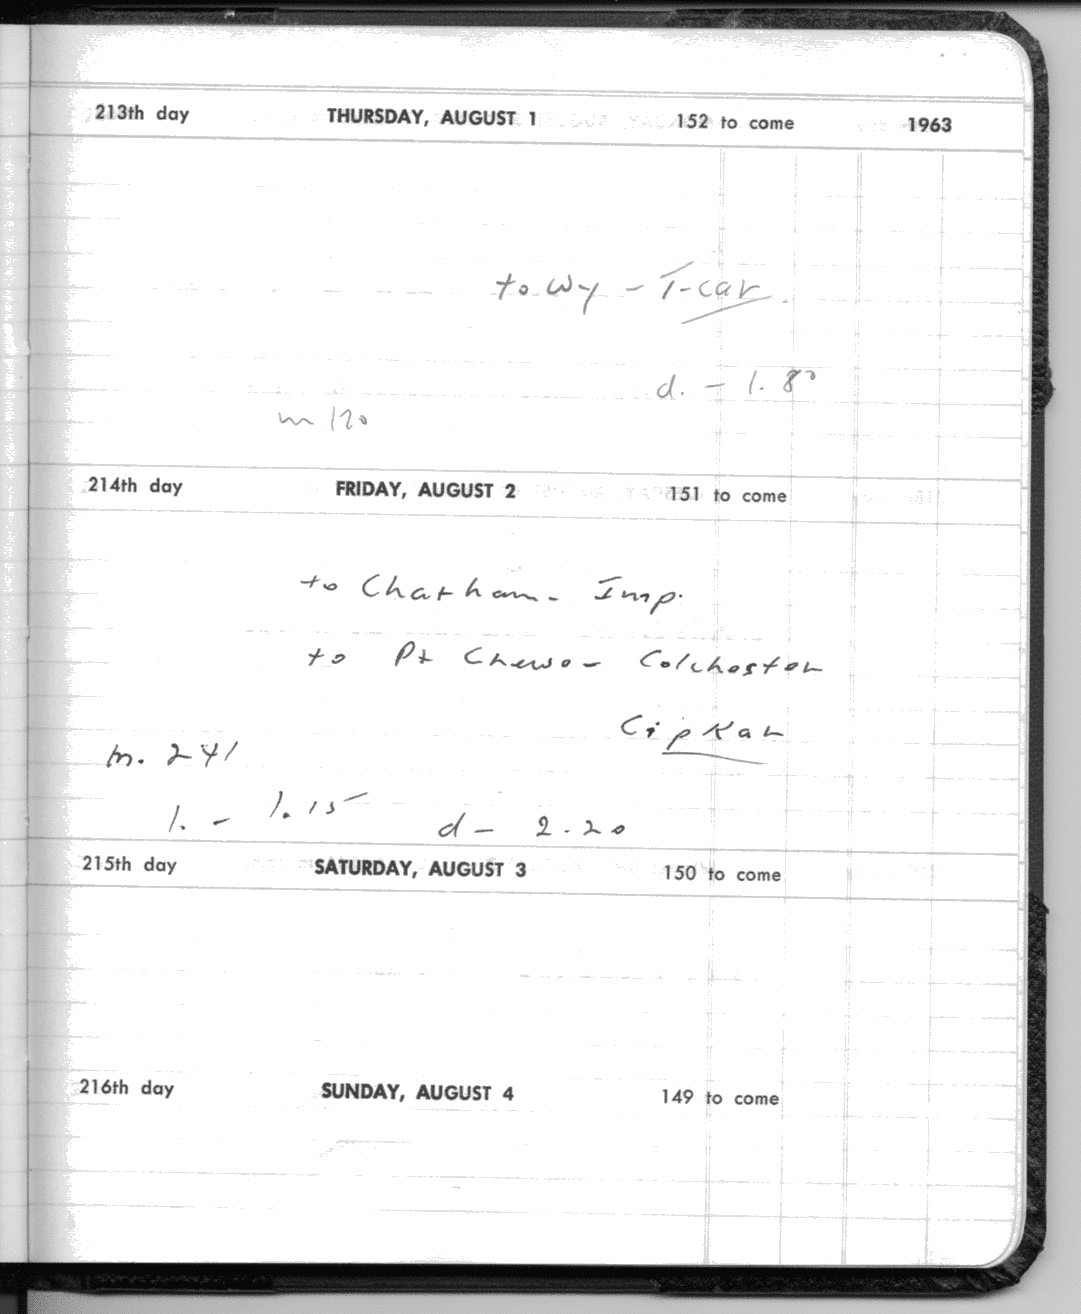 213th day THURSDAY, AUGUST 1 152 to come 1963
to Wy - T-car.
d. - 1.80
m 120
214th day FRIDAY, AUGUST 2 151 to come
to Chatham - Imp.
to Pt Colchester
Cipkar
m. 241
l. - 1.15 d - 2.20
215th day SATURDAY, AUGUST 3 150 to come
216th day SUNDAY, AUGUST 4 149 to come